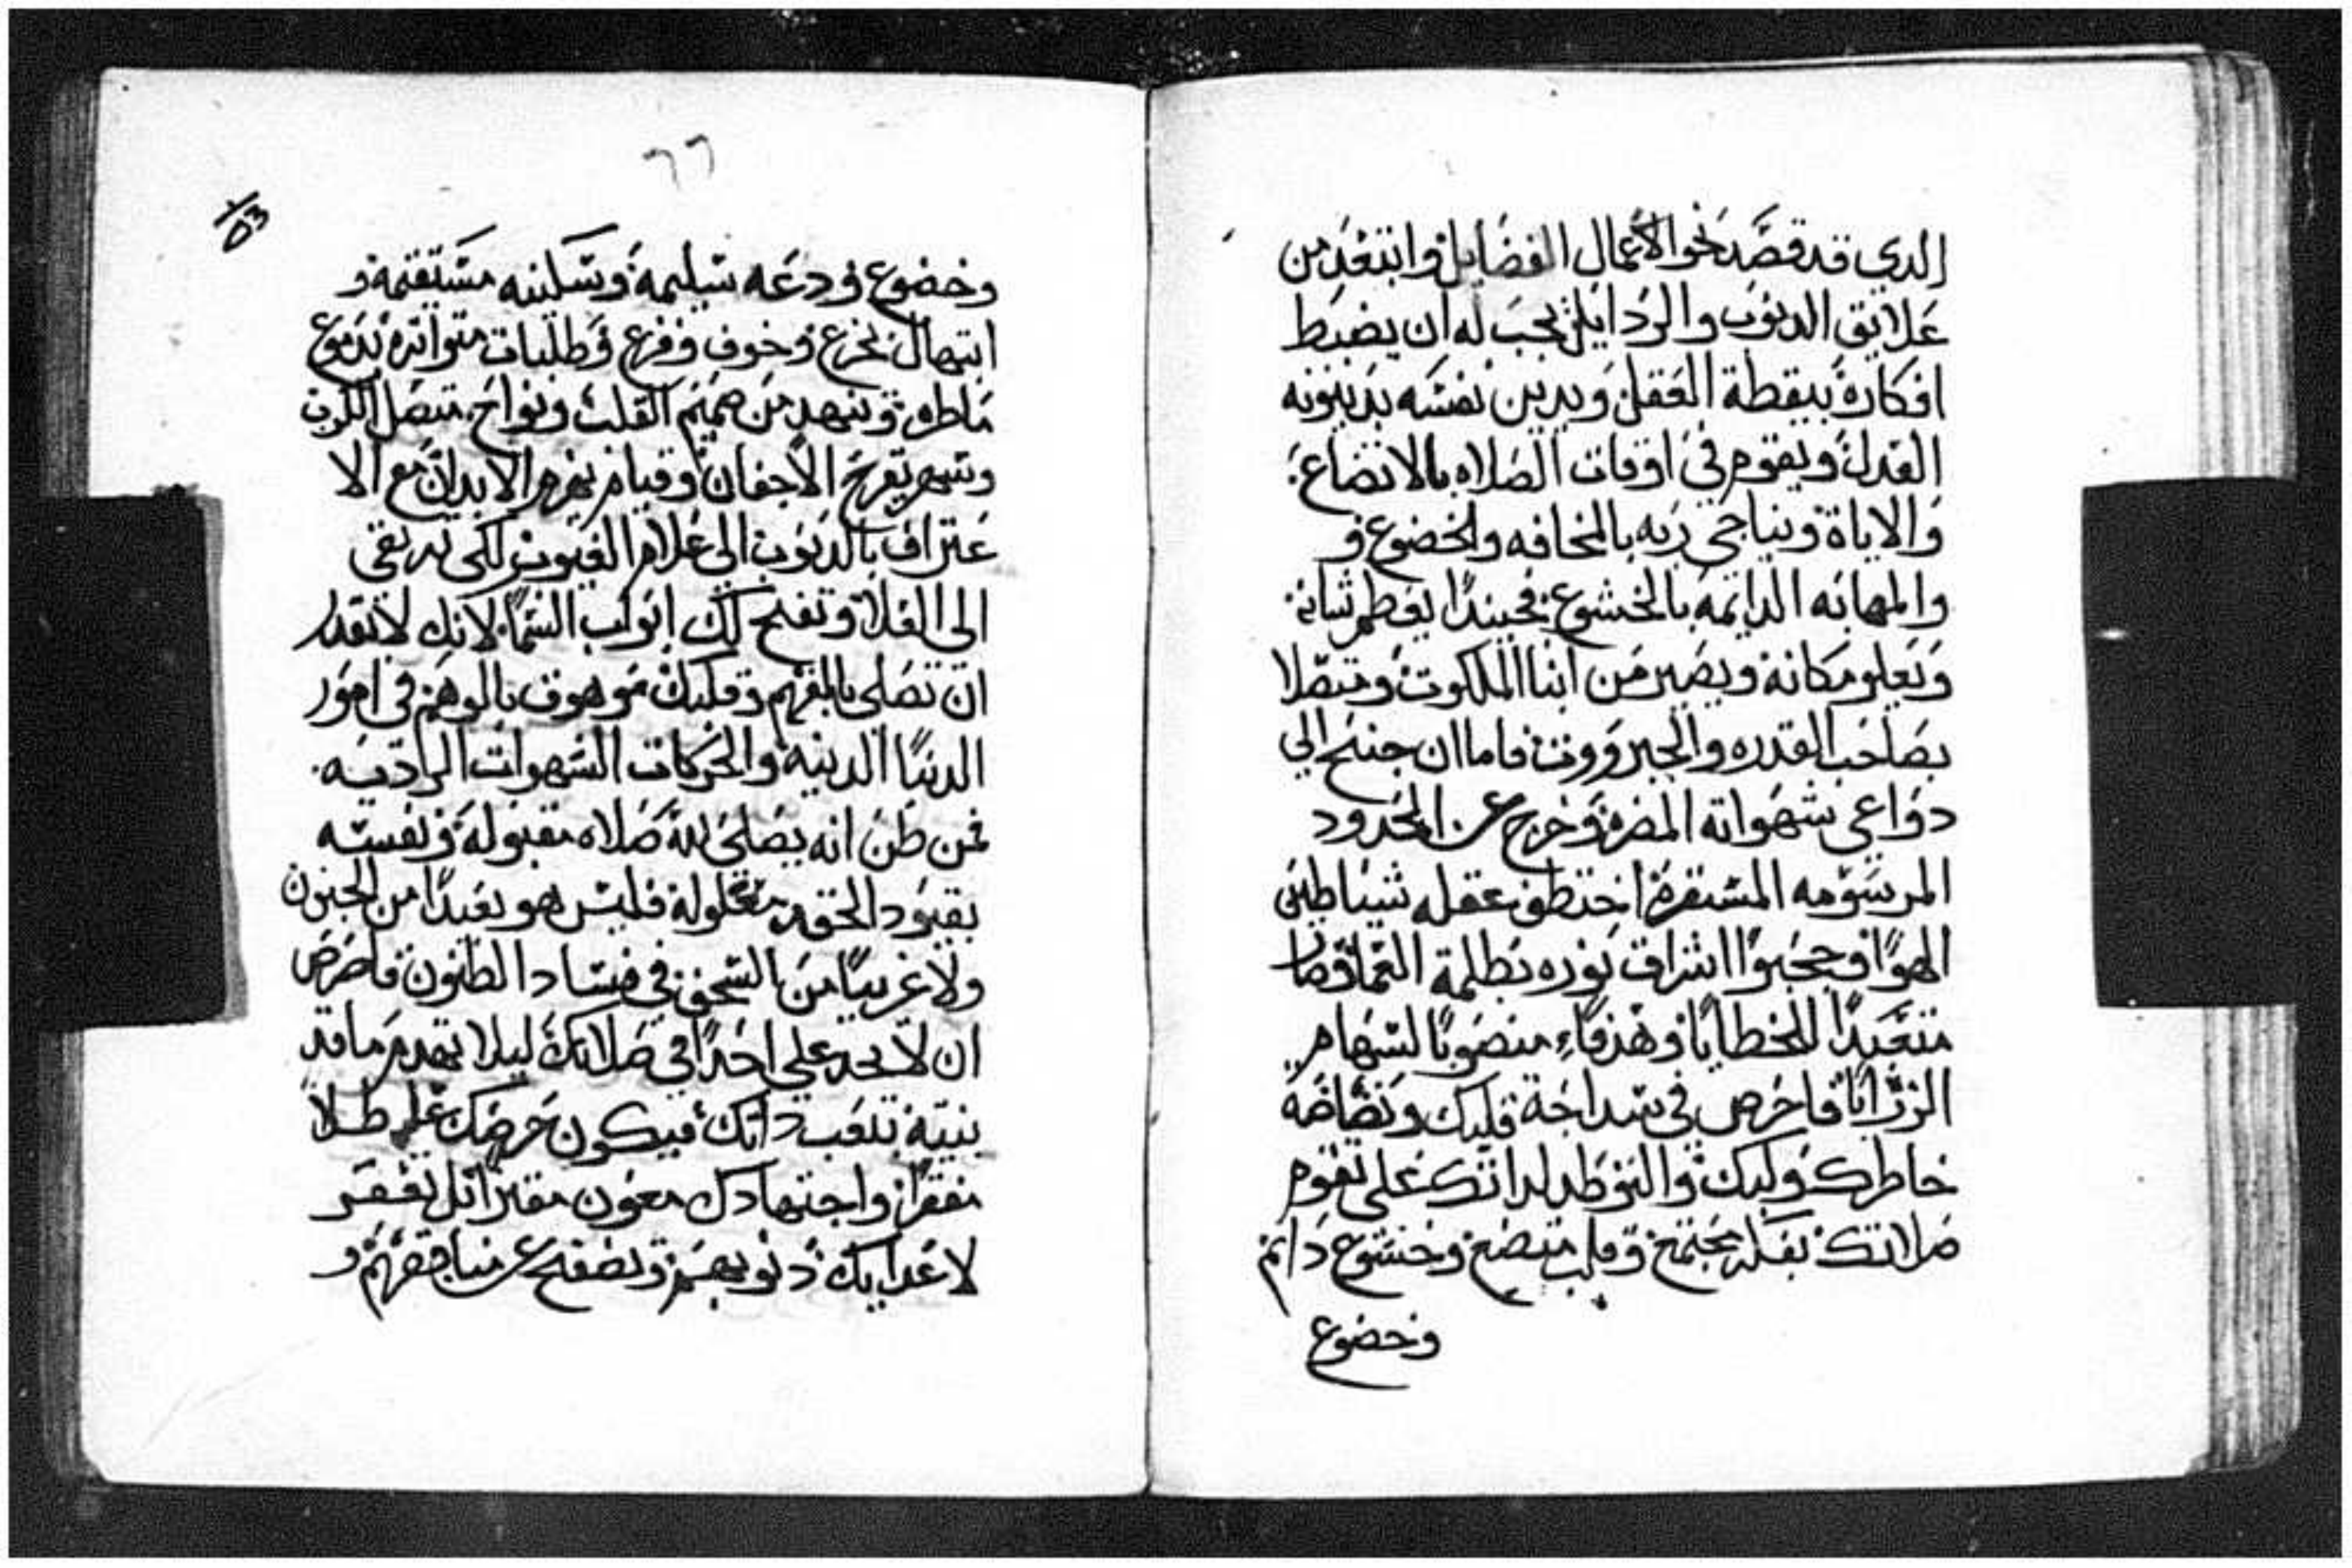 الدي قد قصد نحو الاعمال الفضايل وابتعد من
علايق الدنوب والردايل يجب له ان يضبط
افكاره بيقظة العقل ويدين نفسه بدينونه
العدل ويقوم في اوقات الصلاه بالاتضاع
والاياة ويناجي ربه بالمخافه والخضوع و
والمهابه الدايمه بالخشوع فحيندا يعظم شانه
ويعلو مكانه ويصير من ابنا الملكوت ومتصلا
بصاحب القدره والجبرووت فاما ان جنح الي
دواعي شهواته المضره وخرج عن الحدود
المرسومه المستقره اختطف عقله شياطين
الهوا وحجبوا اشراق نوره بظلمة العما وصار
متعبدًا للخطايا وهدفاء منصوبا لسهام
الرزايا فاحرص في سداجة قلبك ونصاصة
خاطرك ولبك والتوطد لداتك على تقوم
صلاتك بعقل مجتمع وقلب متضع وخشوع دايم
وخضوع
٦٦
53
وخضوع ودعه سليمه وسكينه مستقيمه و
ابتهال بخرع وخوف وفزع وطلبات متواتره بدموع
ماطره وتنهد من صميم القلب ونواح متصل الكرب
وسهر يقرح الاجفان وقيام يهزم الابدان مع الا
عتراف بالدنوب الي علام الغيوب لكي ترتقي
الى العلا وتفتح لك ابواب السما لانك لا تقدر
ان تصلي بالفهم وقلبك موهوق بالوهم في امور
الدنيا الدنيه والحركات الشهوات الراديه
فمن ظن انه يصلي لله صلاه مقبوله ونفسه
بقيود الحقد مغلوله فليس هو بعيدًا من الجنون
ولا غريبًا من السخف في فساد الظنون فاحرص
ان لا تحد علي احدًا في صلاتك ليلا تهدم ما قد
بنيته بتعب داتك فيكون حرصك علي طلا
مقفرا واجتهادك معون مقبرا بل تغفر
لاعدايك دنوبهم وتصفح عن مناقصهم و